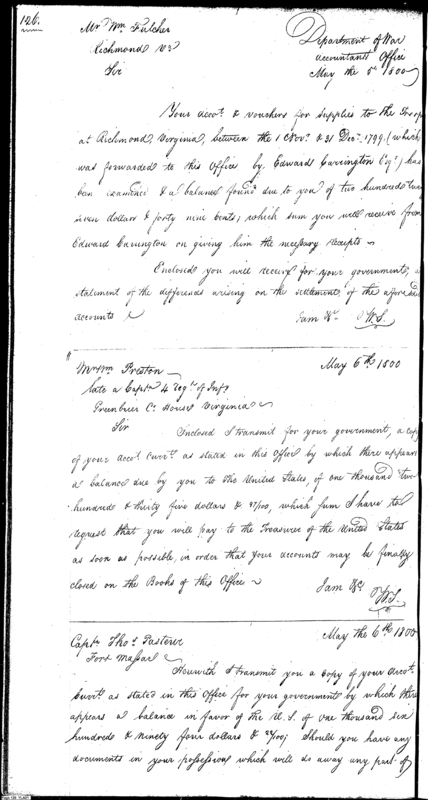 126.
Mr. Wm. Fulcher
Richmond Va
Sir
Department of War
accountants Office
May the 5th 1800
Your accot. & vouchers for supplies to the Troops
at Richmond, Virginia, between the 1 Novr. & 31 Decr. 1799. (which
was forwarded to this Office by Edward Carrington Esqr.) has
been examined & a balance found due to you of two hundred twenty
seven dollars & forty nine cents; which sum you will receive from
Edward Carrington on giving him the necessary receipts
Enclosed you will receive for your government, a
statement of the differences arising on the settlement of the aforesaid
accounts
I am &c.
W.S.
Mr Wm. Preston
May 6th 1800
late a Captn. 4 Regt. of Infy
Greenbrier Ct. House Virginia
Sir
Inclosed I transmit for your government, a copy
of your Accot Currt. as stated in this Office by which there appears
a balance due by you to the United States, of one thousand two
hundred & thirty five dollars & /100, which sum I have to
request that you will pay to the Treasurer of the United States
as soon as possible, in order that your accounts may be finally
closed on the Books of this Office
I am &c
W.S.
Captn. Thos. Pasteur
May the 6th 1800
Fort Massac
Herewith I transmit you a Copy of your Accot.
Currt. as stated in this Office for your government by which there
appears a balance in favor of the U. S. of One thousand six
hundred & ninety four dollars & /100; Should you have any
documents in your possession which will do away any part of